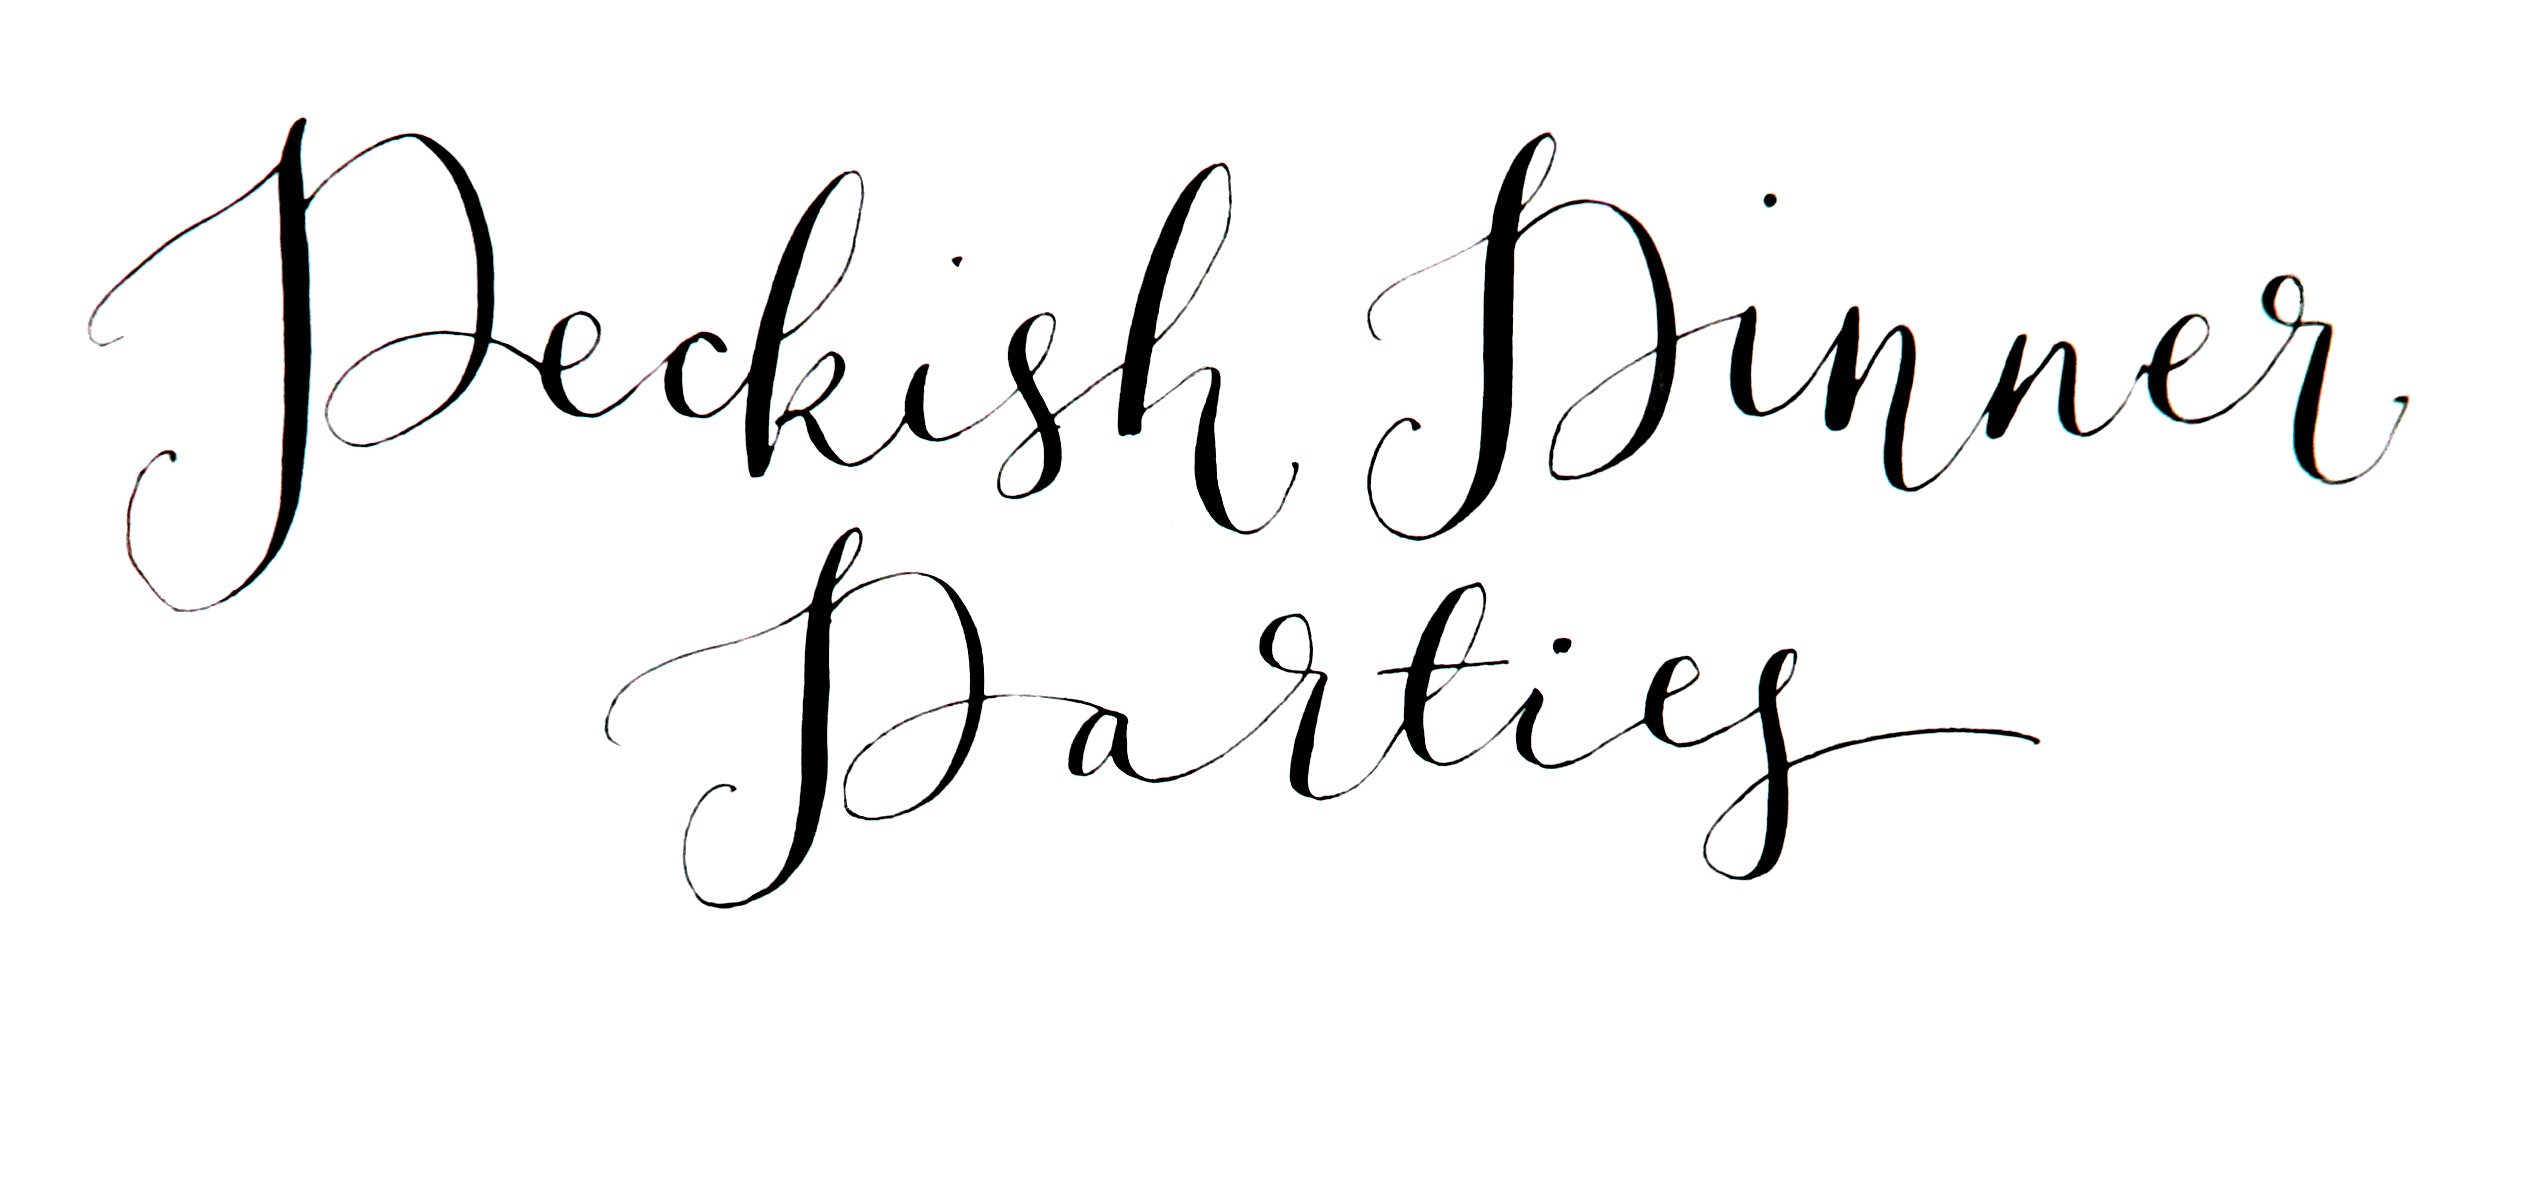 Peckish Dinner
Parties